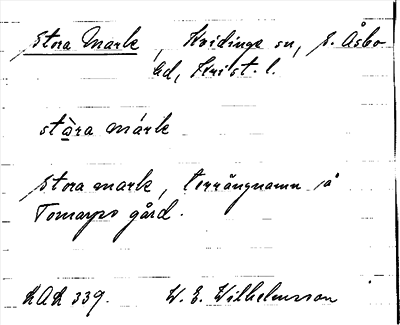 Stora Mark, Kvidinge sn, S. Åsbo
hd, Krist. l.
stàra márk
Stora mark, terrängnamn på
Tomarps gård.
LAL 339. W. E. Wilhelmsson